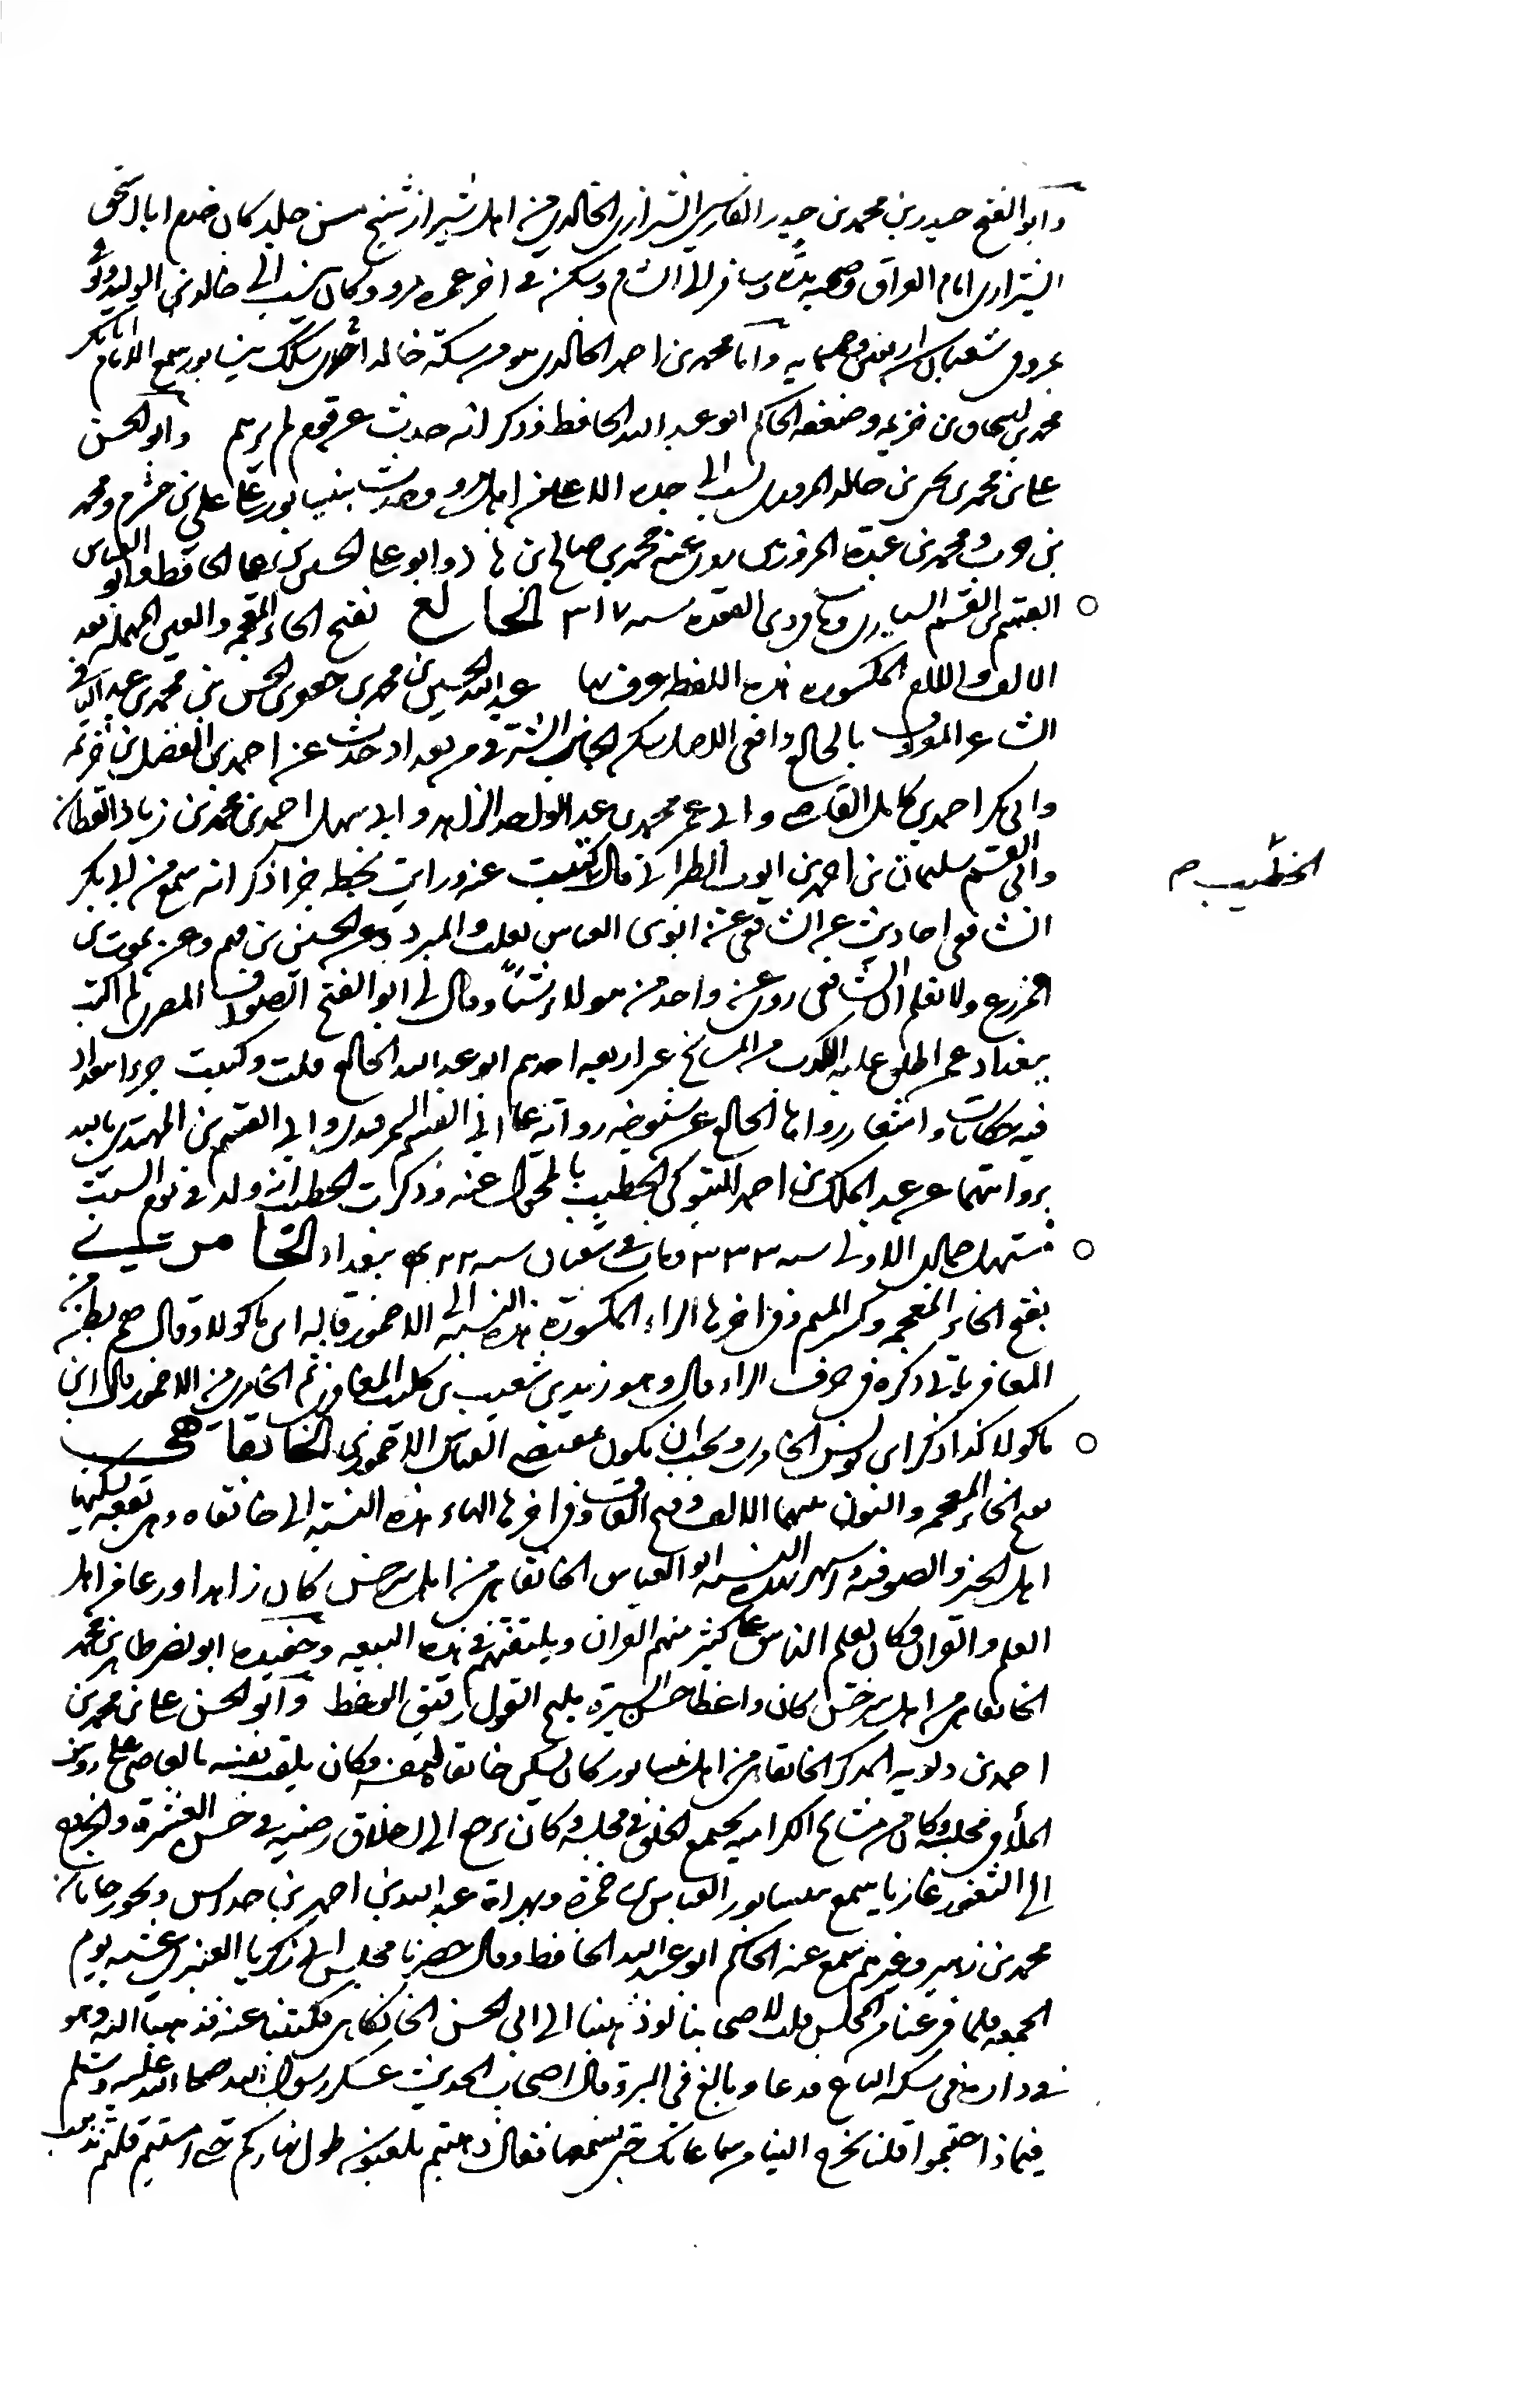 وابو الفتح حيدر بن محمد بن حيدر الفارسي الشيرازي الخالدي من اهل شيراز شيخ مسن جليد كان خدم ابا اسحق
الشيرازي امام العراق وصحبه مدة وسافر الى الشام وسكن في اخر عمره مرو وكان ينسب الى خالد بن الوليد وتوفي
بمرو في شعبان سنة اربعين وخمسمايه واما محمد بن احمد الخالدي هو من سكة خالد احدى سكك نيسابور سمع الامام ابا بكر
محمد بن اسحاق بن خزيمه وضعفه الحاكم ابو عبد الله الحافظ وذكر انه حدث عن قوم لم يرهم وابو الحسن
علي بن محمد بن يحيى بن خالد المروزي نسب الى جده الاعلى من اهل مرو وحدث بنيسابور عن علي بن خشرم ومحمد
بن حرب ومحمد بن عبدة المروزي روى عنه محمد بن صالح بن هاني وابو علي الحسين بن علي الحافظ وابو العباس
القسم بن القسم السياري ومات في ذي القعدة سنه ٣١٧ الخالع بفتح الخاء المعجمه والعين المهمله بعد
الالف واللام المكسوره هذه اللفظه عرف بها عبد الله الحسين بن محمد بن جعفر بن الحسن بن محمد بن عبد الباقي
الشاعر المعروف بالخالع رافقي الاصل سكن الجانب الشرقي من بغداد حدث عن احمد بن الفضل بن خزيمه
وابي بكر احمد بن كامل القاضي وابي عمر محمد بن عبد الواحد الزاهد وابي سهل احمد بن محمد بن زياد القطان
وابي القسم سليمان بن احمد بن ايوب الطبراني قال كتبت عنه ورايت بخطه جزا ذكر انه سمع من ابي بكر
الخطيب م
الشافعي احاديث عن الشافعي عن ابوي العباس ثعلب والمبرد وعن الحسين بن فهم وعن يموت بن
المزرع ولا نعلم ان الشافعي روى عن واحد من هولاء شيئا وقال لي ابو الفتح الصواف المصري لم اكتب
ببغداد عمن اطلق عليه الكذب من المشايخ غير اربعه احدهم ابو عبد الله الخالع قلت وكتبت جزءا ببغداد
فيه حكايات واشعار رواها الخالع عن شيوخه روايه عالي ابي القسم السمرقندي وابي القسم بن المهتدي بالله
بروايتهما عن عبد الملك بن احمد المتوكلي الخطيب بالمحول عنه وذكر الخطيب انه ولد في يوم السبت
مستهل جمادى الاولى سنه ٣٣٣ ومات في شعبان سنه ٤٢٢ ببغداد الخامري
بفتح الخاء المعجمه وكسر الميم وفي اخرها الراء المكسورة هذه النسبه الى الاخمور قاله ابن ماكولا وقال هم بطن من
المعافر ياتي ذكره في حرف الراء قال وهو زيد بن شعيب بن كليب المعافري ثم الخامري من الاخمور قال ابن
ماكولا كذا ذكر ابن يونس الخامري ويجب ان يكون بمقتضى القياس الاخموري الخانقاهي
بفتح الخاء المعجمه والنون بينهما الالف وفتح القاف وفي اخرها الهاء هذه النسبة الى خانقاه وهي بقعه يسكنها
اهل الخير والصوفيه واشتهر بهذه النسبه ابو العباس الخانقاهي من اهل سرخس كان زاهدا ورعا من اهل
العلم والقران وكان يعلم الناس علم كثير منهم القران ويلقنهم في هذه البقعه وحفيده ابو نصر طاهر بن محمد
الخانقاهي من اهل سرخس كان واعظا حسن السيرة مليح القول رقيق الوعظ وابو الحسن علي بن محمد بن
احمد بن دلويه المذكر الخانقاهي من اهل نيسابور كان يسكن خانقاه لنفسه وكان يلقب نفسه بالعاصي على رؤس
الملأ في مجلسه وكان من مشايخ الكراميه يجتمع الخلق في مجلسه وكان يرجع الى اخلاق رضيه في حسن العشرة والخروج
الى الثغور غازيا سمع بنيسابور العباس بن حمزه وبهراة عبد الله بن احمد بن
محمد بن زهير وغيرهم سمع عنه الحاكم ابو عبد الله الحافظ وقال حضرنا مجلس ابي زكريا العنبري عشيه يوم
الجمعه فلما فرغنا من المجلس قلت لاصحابنا لو ذهبنا الى ابي الحسن الخانقاهي فكتبنا عنه فذهبنا اليه وهو
في داره في سكه الباغ فدعا وبالغ في البر وقال اصحاب الحديث عسكر رسول الله صلى الله عليه وسلم
فيماذا جئتم قلنا تخرج الينا من سماعاتك حتى نسمعها فقال ذهبتم تلعبون طول نهاركم حتى امسيتم قلتم نذهب